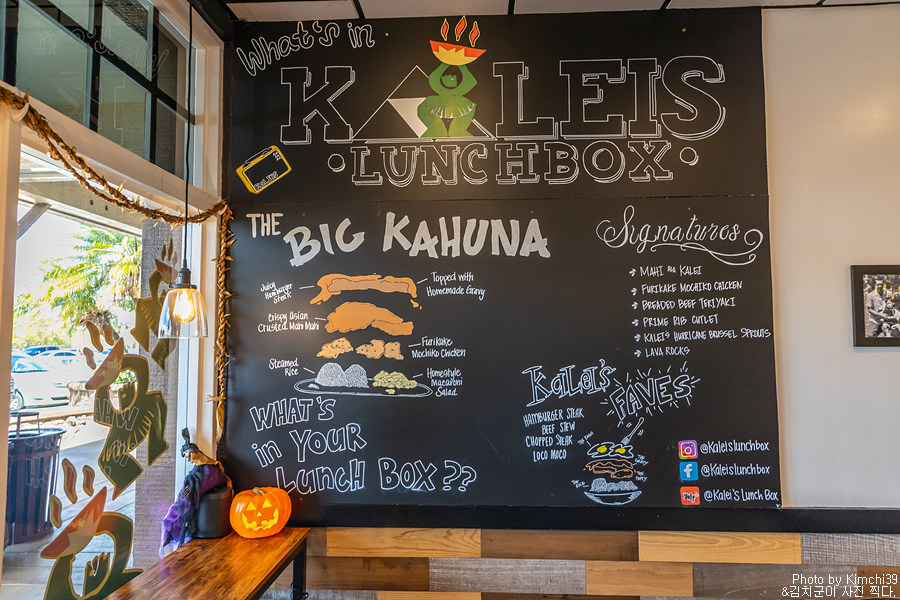 What's in
KALEIS
LUNCHBOX
THE BIG KAHUNA
Juicy
Hamburger
Steak
Topped with
Homemade Gravy
Crispy Asian
Crusted Mahi Mahi
Furikake
Mochiko Chicken
Steamed
Rice
Homestyle
Macaroni
Salad
WHAT'S
in YOUR
LUNCH BOX??
Signatures
MAHI ala KALEI
FURIKAKE MOCHIKO CHICKEN
BREADED BEEF TERIYAKI
PRIME RIB CUTLET
KALEIS HURRICANE BRUSSEL SPROUTS
LAVA ROCKS
KALEI'S FAVES
HAMBURGER STEAK
BEEF STEW
CHOPPED STEAK
LOCO MOCO
@Kaleislunchbox
@Kaleislunchbox
Yelp
@Kalei's Lunch Box
Photo by Kimchi39
&김치군이 사진 찍다.